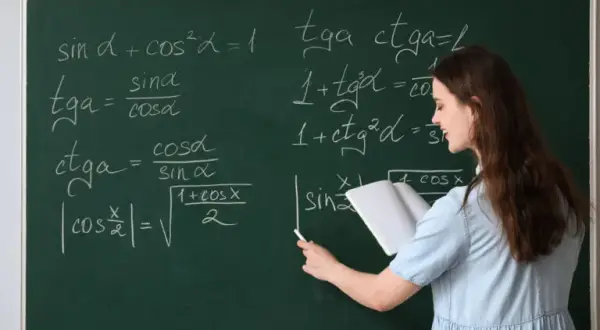 sin α + cos²α = 1
tga = sinα / cosα
ctga = cosα / sinα
|cos x/2| = √(1+cosx / 2)
tga ctga=
1+tg³α = 1 / co
1+ctg²α = / si
|sin x/2 √(1-cosx